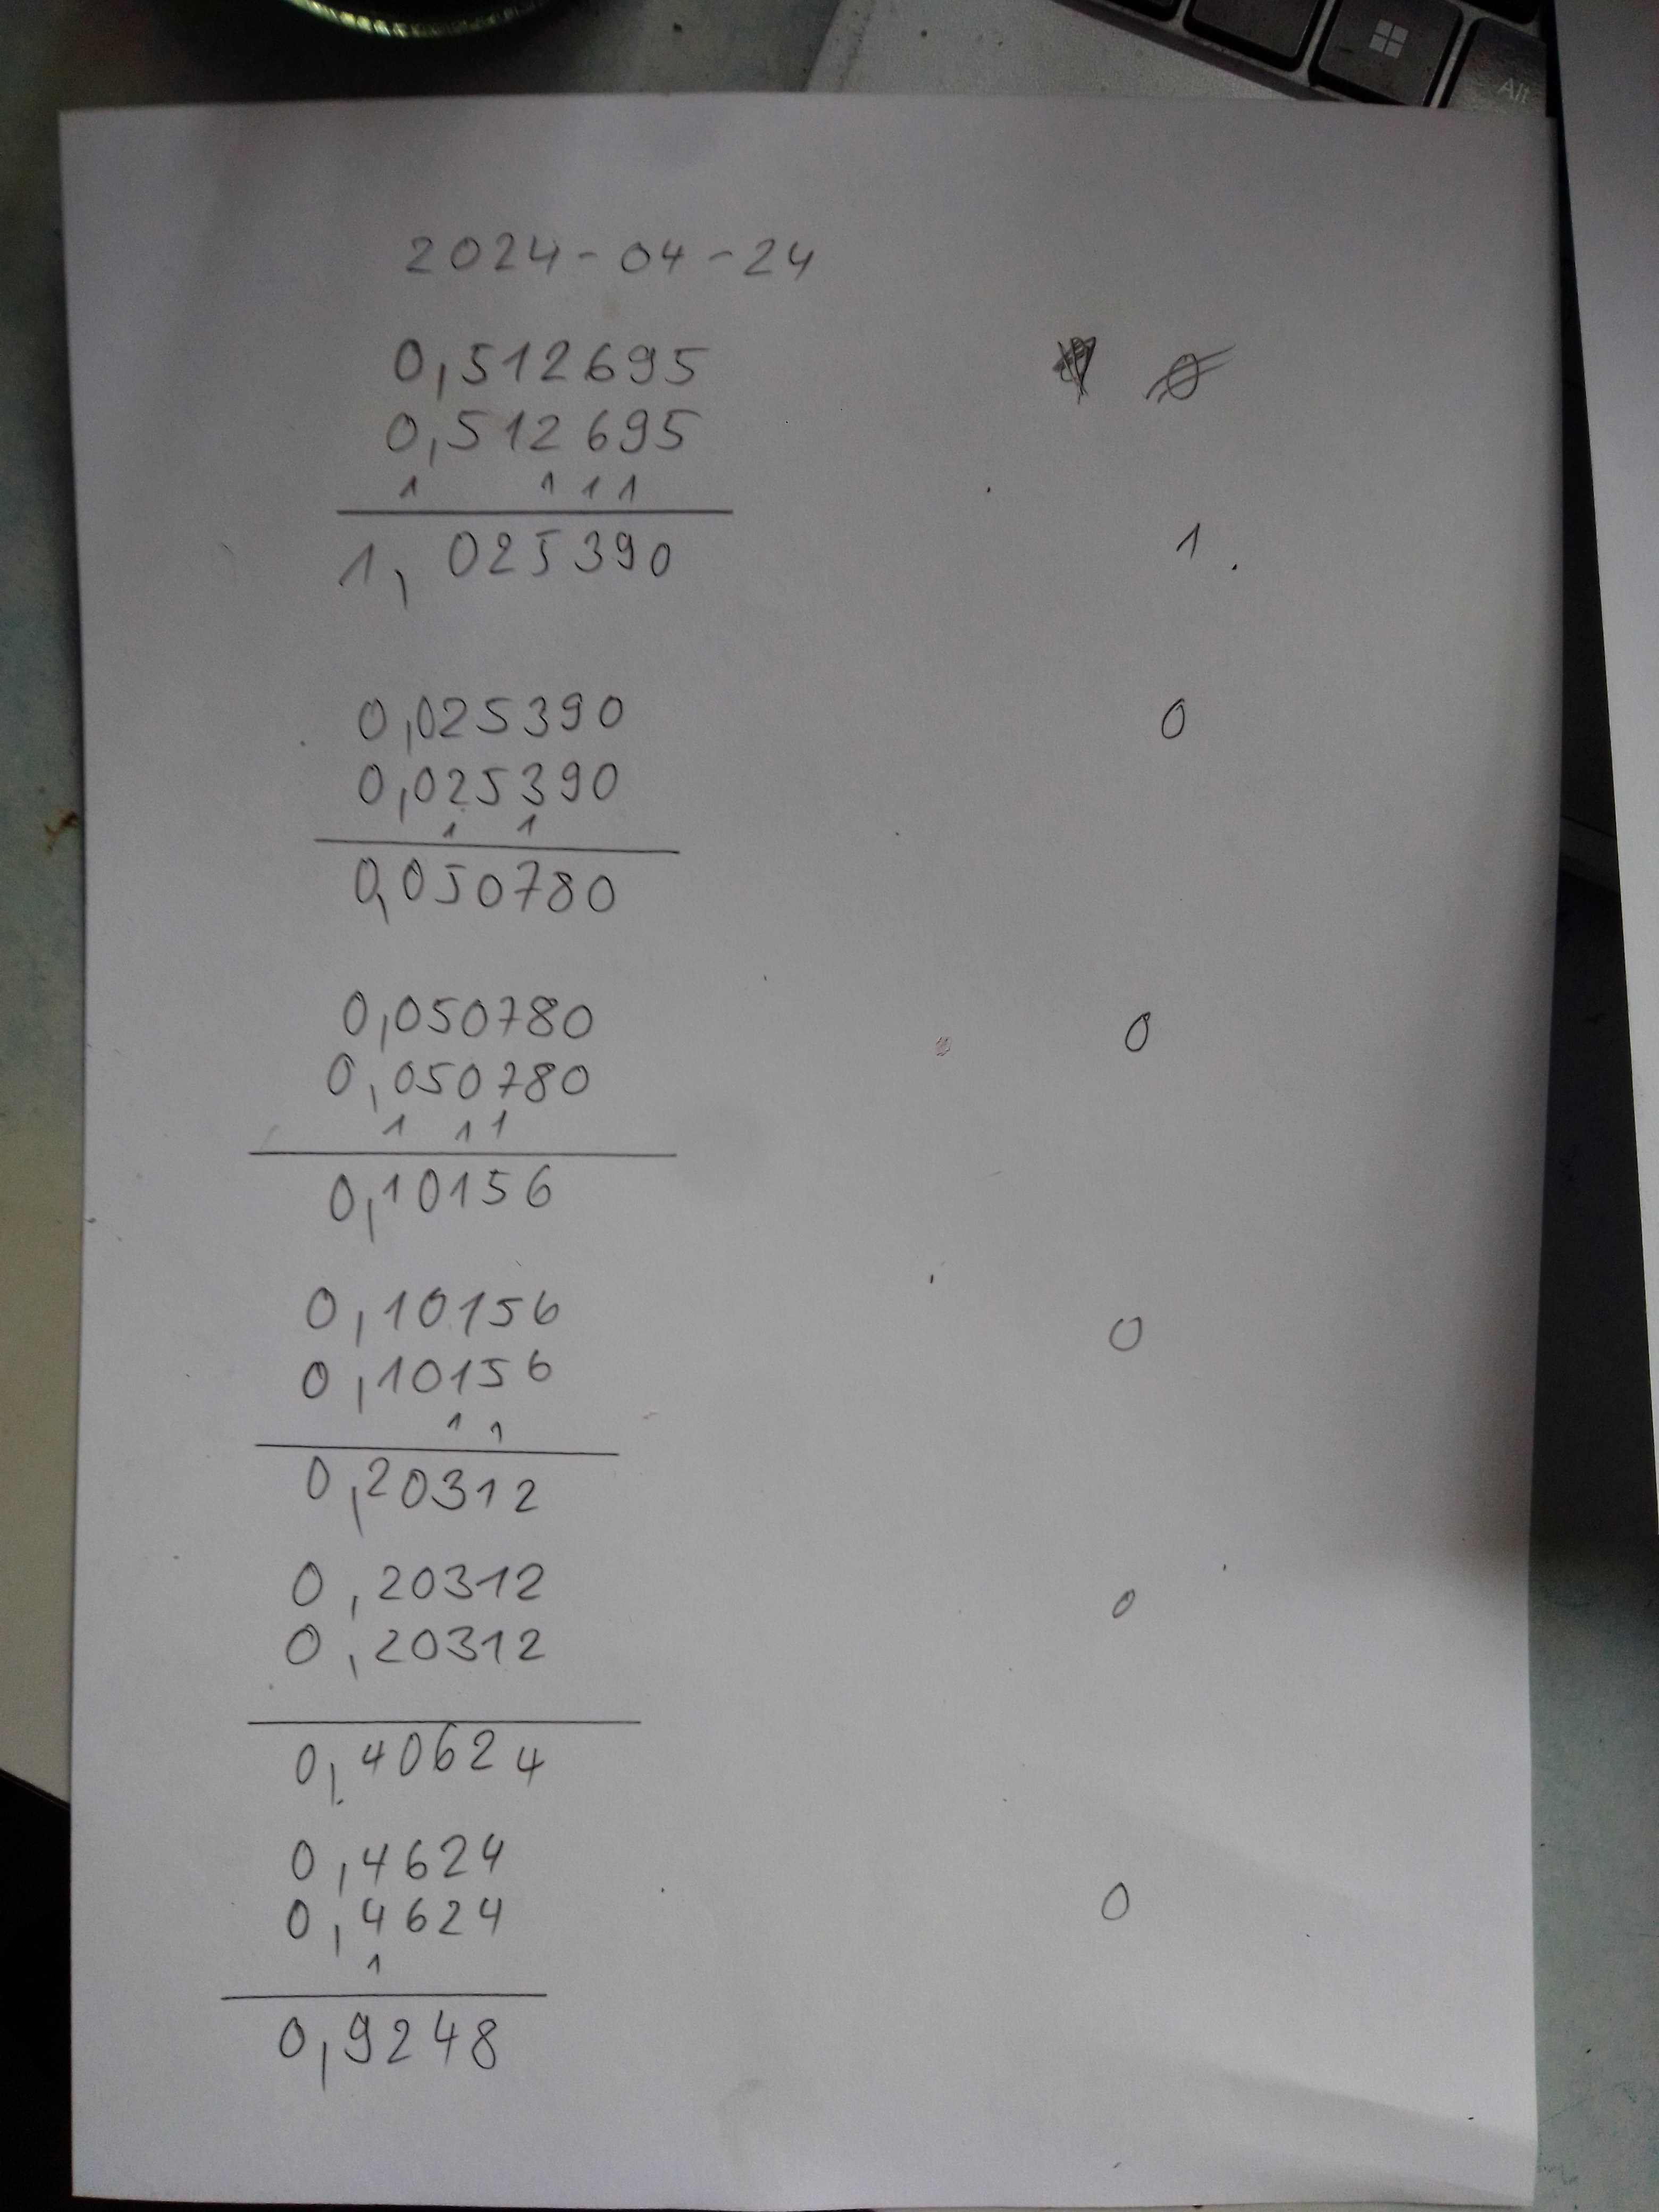 Alt
2024-04-24
0,512695
0,512695
1 1 1 1
1,025390 1
0,025390 0
0,025390
1 1
0,050780
0,050780 0
0,050780
1 1 1
0,10156
0,10156 0
0,10156
1 1
0,20312
0,20312 0
0,20312
0,40624
0,4624
0,4624 0
1
0,9248